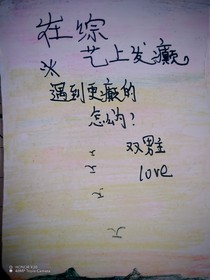 在综
※艺上发癫,
遇到更癫的
怎么办?
双男主
love